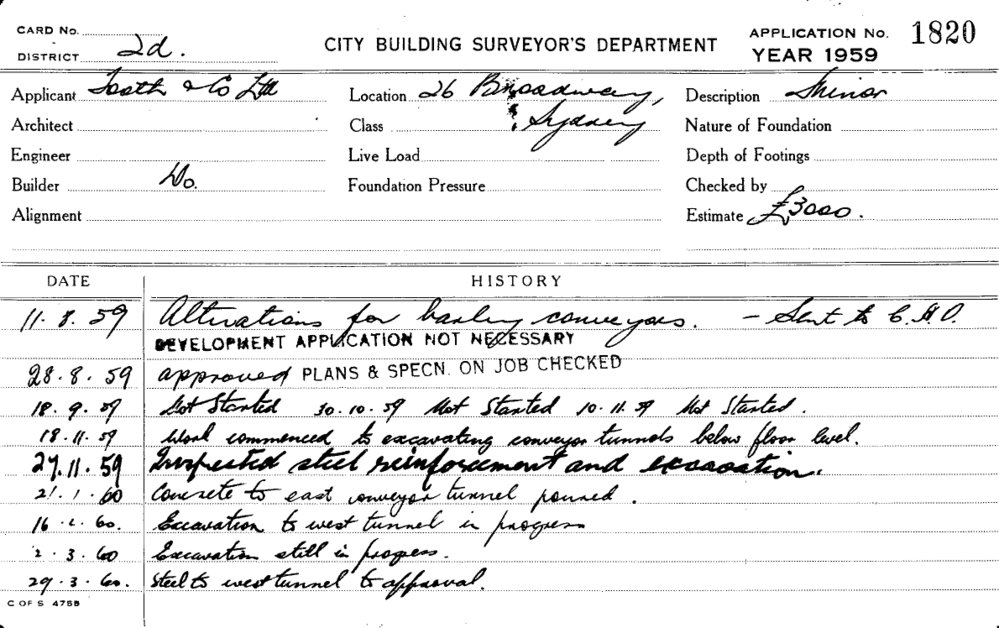 CARD No.
DISTRICT 2d.
CITY BUILDING SURVEYOR'S DEPARTMENT
APPLICATION No. 1820
YEAR 1959
Applicant Tooth & Co Ltd Location 26 Broadway, Description Minor
Architect Class Sydney Nature of Foundation
Engineer Live Load Depth of Footings
Builder Do. Foundation Pressure Checked by
Alignment Estimate £3000.
DATE HISTORY
11.8.59 Alterations for barley conveyors. - Sent to C.H.O.
DEVELOPMENT APPLICATION NOT NECESSARY
28.8.59 approved PLANS & SPECN. ON JOB CHECKED
18.9.59 Not Started 30.10.59 Not Started 10.11.59 Not Started.
18.11.59 Work commenced to excavating conveyor tunnels below floor level.
27.11.59 Inspected steel reinforcement and excavation.
21.1.60 Concrete to east conveyor tunnel poured.
16.2.60. Excavation to west tunnel in progress
2.3.60 Excavation still in progress.
29.3.60. Steel to west tunnel to approval.
C OF S 4755